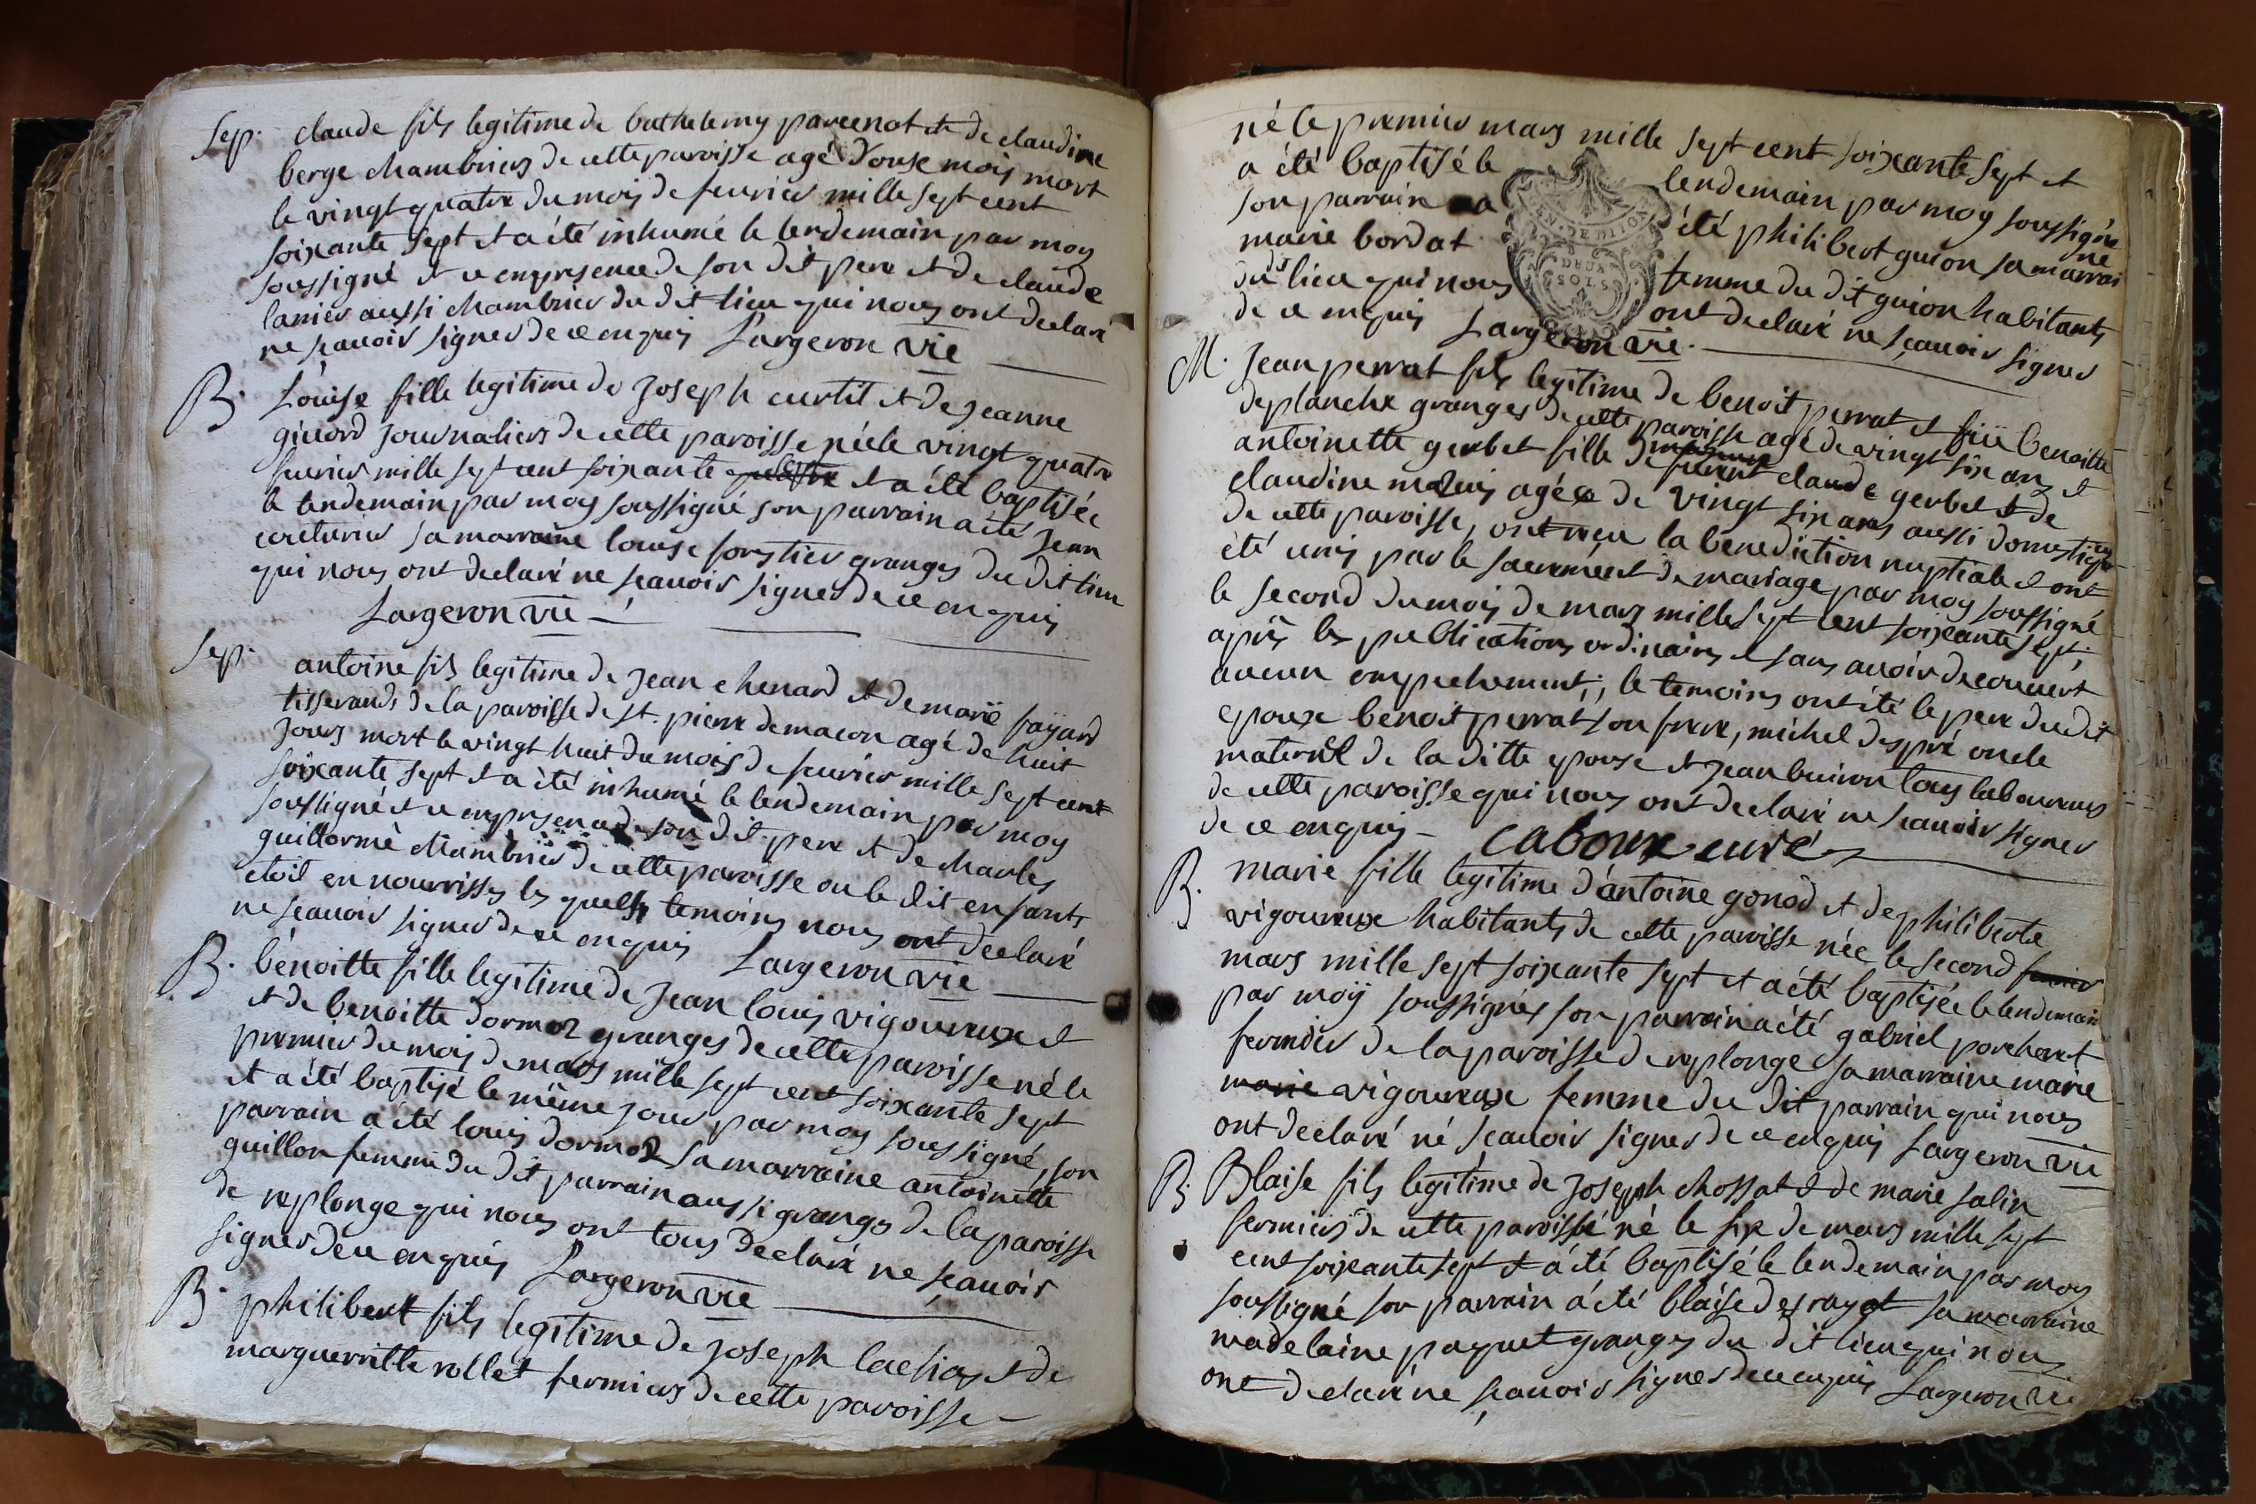 Sep. claude fils legitime de bathelemy parcenot et de claudine
berge chambriers de cette paroisse agé d'onse mois mort
le vingt quatre du mois de feurier mille sept cent
soixante sept et a été inhumé le lendemain par moy
soussigné et ce enpresence de son dit pere et de claude
lanier aussi chambrier du dit lieu qui nous ont declaré
ne sçauoir signer de ce enquis Largeron vic
B. Loüise fille legitime de Joseph curtil et de jeanne
giuord journaliers de cette paroisse née le vingt quatre
feurier mille sept cent soixante et a été baptisée
le lendemain par moy soussigné son parrain a été jean
couturier sa marraine louise forestier granges du dit lieu
qui nous ont declaré ne sçauoir signer de ce enquis
Largeron vic
Sep. antoine fils legitime de jean chenard et de marië faÿard
tisserands de la paroisse de st. pierre demacon agé de huit
jours mort le vingt huit du mois de feurier mille sept cent
soixante sept et a été inhumé le lendemain par moy
soussigné et ce enpresence de son dit pere et de charles
guillormé chambrier de cette paroisse ou le dit enfant
étoit en nourrisse les quels temoins nous ont declaré
ne sçauoir signer de ce enquis Largeron vic
B. bénoitte fille legitime de jean louis vigoureuxe et
et de benoitte dormoz granges de cette paroisse né le
premier du mois de mars mille sept cent soixante sept
et a été baptisé le même jour par moy soussigné, son
parrain a été louis dormoz sa marraine antoinette
guillon femme du dit parrain aussi granges de la paroisse
de replonge qui nous ont tous declaré ne sçauoir
signer de ce enquis Largeron vic
B. philibert fils legitime de joseph lachay et de
marguerritte rollet fermiers de cette paroisse
né le premier mars mille sept cent soixante sept et
a été baptisé le lendemain par moy soussigné
son parrain a été philibert guion sa marrai ne
marie bordat femme du dit guion habitants
du dit lieu qui nous ont declaré ne sçauoir signer
de ce enquis Largeron vic.
M. jean perrat fils legitime de benoit perrat et feüe benoitte
deplanche granges de cette paroisse agé de vingt six ans et
antoinette gerbet fille de claude gerbet et de
claudine agée de vingt six ans aussi domestique
de cette paroisse, ont recu la benediction nuptiale et ont
été unis par le sacrement de mariage par moy soussigné
le second du mois de mars mille sept cent soixante sept;
après les publications ordinaires et sans auoir decouuert
aucun empechement; le temoins ont été le pere du dit
epoux benoit perrat son frere, michel despré oncle
maternel de la ditte epouse et jean buiron tous laboureurs
de cette paroisse qui nous ont declaré ne sçauoir signer
de ce enquis – caboux curé
B. marie fille legitime d'antoine gonod et de philiberte
vigoureuxe habitants de cette paroisse née le second feurier
mars mille sept soixante sept et a été baptisée le lendemain
par moÿ soussignés son parrain a été gabriel porcheret
fermier de la paroisse de replonge sa marraine marie
marie vigoureuxe femme du dit parrain qui nous
ont declaré né sçauoir signer de ce enquis Largeron vic
B. Blaise fils legitime de joseph chossat et de marie salin
fermiers de cette paroisse né le six de mars mille sept
cent soixante sept et a été baptisé le lendemain par moy
soussigné son parrain a été blaise desrayat sa marraine
madelaine paquet granges du dit lieu qui nous
ont declaré ne sçauoir signer de ce enquis Largeron vic